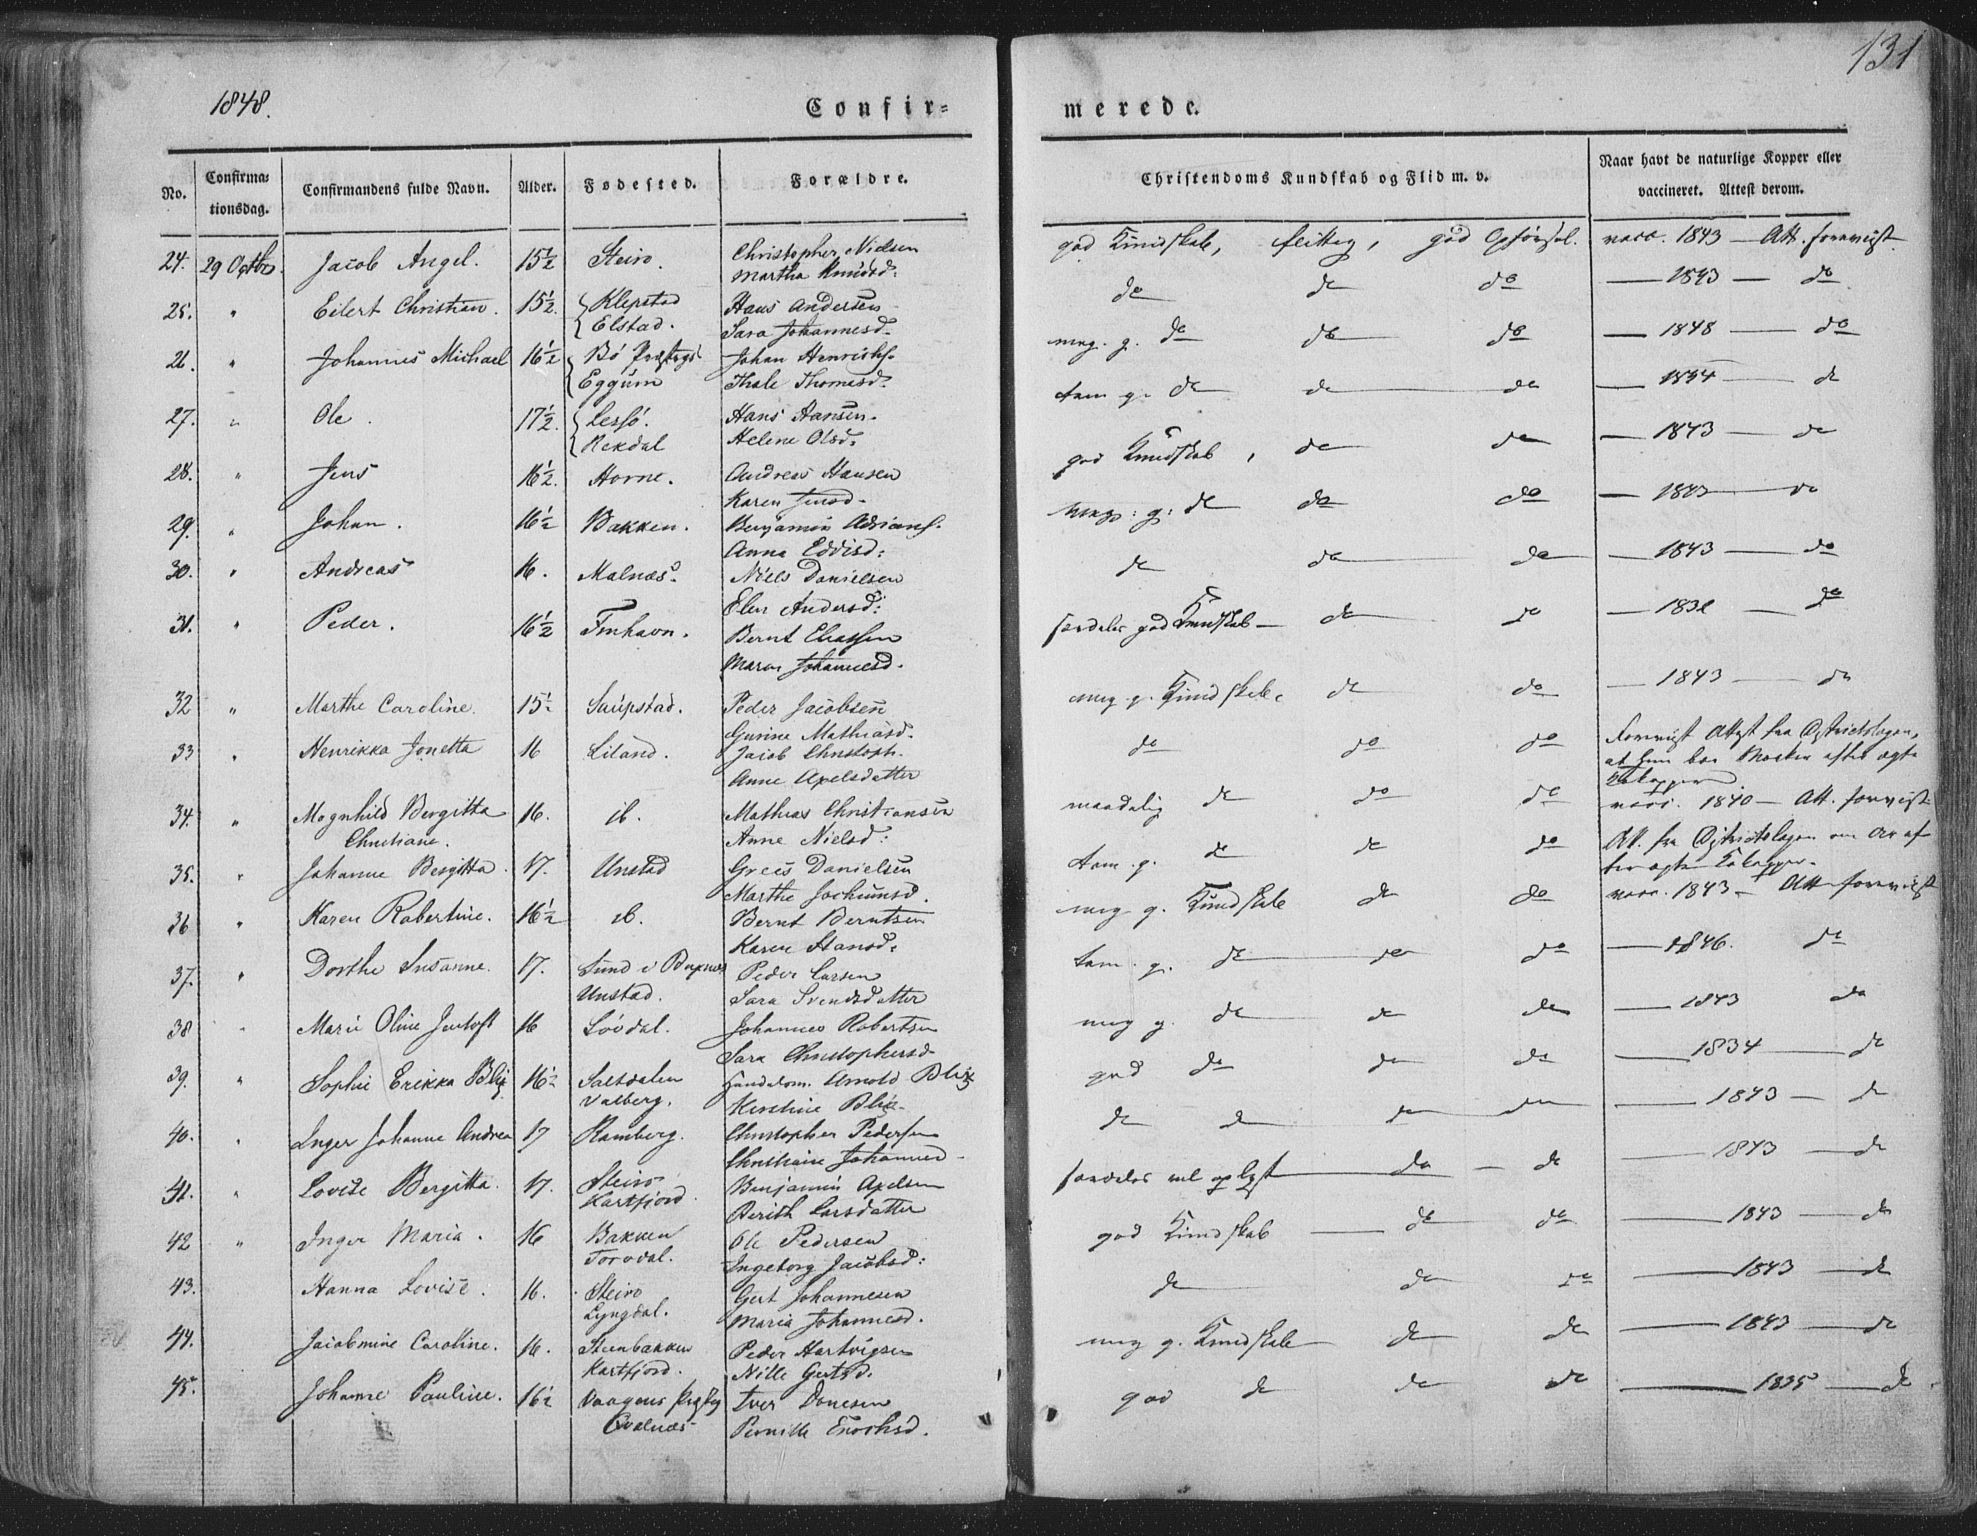 1848.
131
Confir=
merede.
No.
Confirma=
tionsdag.
Confirmandens fulde Navn.
Alder.
Fødested.
Forældre.
Christendoms Kundskab og Flid m. v.
Naar havt de naturlige Kopper eller
vaccineret. Attest derom.
24. 29 Octbr. Jacob Angel. 15½ Steiro. Christophen Nielsen god Kundskab, flittig, god Opførsel. vacc. 1843 — Att. foreviist
Martha Knudsd:
25. " Eilert Christian. 15½. Klepstad Hans Andersen do do do — 1843 — do
Elstad. Sara Johannesd.
26. " Johannes Michael 16½ Bö Præstegd Johan Henrichs. meg. g. do do do — 1848 — do
Eggum Thale Thomasd.
27. " Ole. 17½. Lessö. Hans Hansen. tem g. do do do — 1834 — do
Rekdal Helene Olsd.
28. " Jens 16½. Horne. Andreas Hansen god Kundskab, do do — 1843 — do
Karen Jensd.
29. " Johan. 16½ Bakken. Benjamin Adrians. meg: g: do do do — 1843 — do
Anna Eddisd:
30. " Andreas 16. Malnæs. Niels Danielsen do do do — 1843 — do
Elen Andersd:
31. " Peder. 16½ Finhavn. Bernt Eliassen særdeles god Kundskab — do do — 183 — do
Maren Johannesd.
32 " Marthe Caroline. 15½ Saupstad. Peder Jacobsen meg g. Kundskab. do do — 1843 — do
Gurine Mathiasd.
33 " Henrikka Jonetta 16 Liland. Jacob Christoph. do do do foreviist Attest fra Districtslægen,
Anne Axelsdatter at hun har Mærker efter ægte
Kokopper
34. " Magnhild Bergitta 16. ib. Mathias Christiansen maadelig do do do vacc. 1840 — Att. foreviist
Christiane. Anne Nielsd:
35. " Johanne Bergitta. 17. Unstad Greis Danielsen tem. g. do do do Att. fra Districtslægen om Ar af
Marthe Jochumsd. ter ægte Kokopper.
36 " Karen Robertine. 16½ ib. Bernt Berntsen meg g. Kundskab do do vacc. 1843 — Att foreviist
Karen Hansd.
37. " Dorthe Susanne. 17. Sund i Buxnes Peder Larsen tem. g. do do do — 1846. do
Unstad. Sara Svendsdatter
38 " Marie Oline Jentoft 16 Lövdal. Johannes Robertsen meg g. do do do — 1843 do
Sara Christophersd
39. " Sophie Erikka Blix 16½ Saltdalen Handelsm. Arnold Blix god do do do — 1834 — do
Valberg. Kirstine Blix.
40. " Inger Johanne Andrea 17 Ramberg. Christopher Pedersen do do do do — 1843 — do
Christiane Johannesd.
41. " Lovise Bergitta. 17. Steiro Benjamin Axelsen særdeles vel oplyst do — do — 1843 — do
Kartfjord. Berith Larsdatter
42 " Inger Maria. 16 Bakken Ole Pedersen god Kundskab — do do — 1843 — do
Torvdal. Ingeborg Jacobsd:
43. Hanna Lovise. 16. Steiro Gert Johannesen do do do — 1843 — do
Lyngdal. Maria Johannesd.
44. Jacobmine Caroline. 16. Steenbakken Peder Hartvigsen meg g. Kundskab do do — 1843 — do
Kartfjord. Nille Gertsd.
45. Johanne Pauline. 16½ Vaagens Præsteg Iver Donesen god do do do — 1835 — do
Qvalnæs Pernille Enochsd.